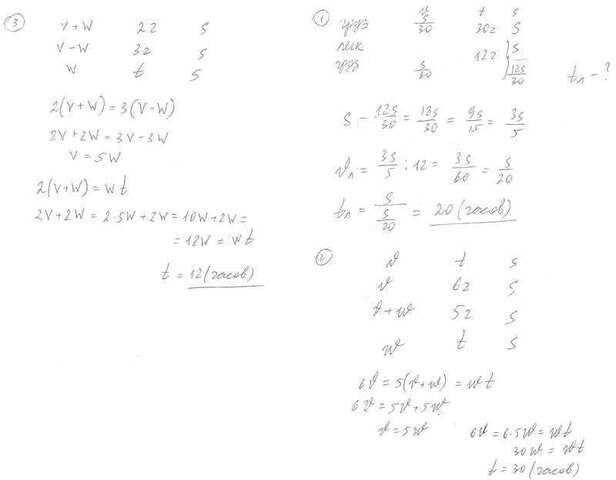 ③
V+W 2г S
V-W 3г S
W t S
2(V+W) = 3(V-W)
2V+2W = 3V-3W
V = 5W
2(V+W) = W t
2V+2W = 2·5W+2W = 10W+2W =
= 12W = W t
t = 12 (часов)
①
v t S
груз S/30 30г S
легк 12г S
груз S/30 12S/30
tл - ?
S - 12S/30 = 18S/30 = 9S/15 = 3S/5
vл = 3S/5 : 12 = 3S/60 = S/20
tл = S/(S/20) = 20 (часов)
②
v t S
v 6г S
v+w 5г S
w t S
6v = 5(v+w) = w t
6v = 5v+5w
v = 5w
6v = 6·5w = w t
30w = w t
t = 30 (часов)